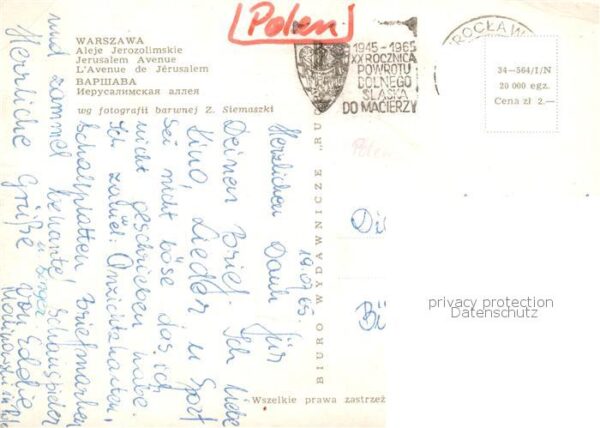 [Polen]
WARSZAWA
Aleje Jerozolimskie
Jerusalem Avenue
L'Avenue de Jérusalem
ВАРШАВА
Иерусалимская аллея
wg fotografii barwnej Z. Siemaszki
1945-1965
XX ROCZNICA
POWROTU
DOLNEGO
ŚLĄSKA
DO MACIERZY
ROCŁAW
34-564/I/N
20 000 egz.
Cena zł 2.—
Polen
BIURO WYDAWNICZE „RUC
Wszelkie prawa zastrzeż
19.07.65.
Herzlichen Dank für
Deinen Brief. Ich liebe
Kino, Lieder u Sport
Sei nicht böse das ich
nicht geschrieben habe.
Ich
Schallplatten, Briefmarken,
und
Herrliche Grüße von Eddie
privacy protection
Datenschutz